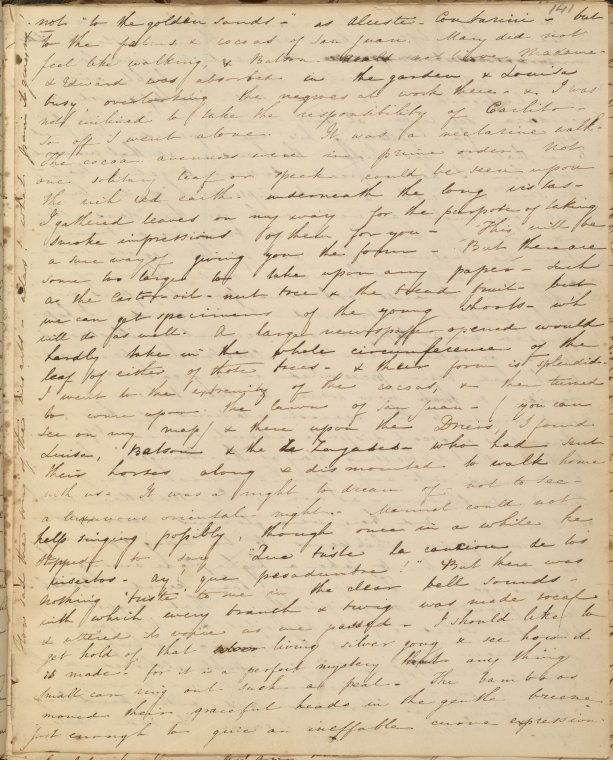 141
not "to the golden sands -" as Alcestes - Contarini - but
to the palms & cocoas of San Juan. Mary did not
feel like walking, & Batson Madame -
& Edward was absorbed in the garden, & Louisa
busy, overlooking the negroes at work there - & I was
not inclined to take the responsibility of Carlito -
so off I went alone. It was a nectarine walk -
The cocoa avenues were in prime order - Not
one solitary leaf or speck could be seen upon
the rich red earth underneath the long vistas -
I gathered leaves on my way for the purpose of taking
smoke impressions of them for you - This will be
a sure way of giving you the form - But there are
some too large to take upon any paper - such
as the castor-oil-nut tree & the bread fruit - but
we can get specimens of the young shoots - wh
will do as well. A large newspaper opened would
hardly take in the whole circumference of the
leaf of either of those trees - & their form is splendid -
I went to the extremity of the cocoas, & then turned
to come upon the lawn of San Juan - (you can
see on my map) & there upon the I found
Luisa, Batson & the Zayadeds - who had sent
their horses along & dismounted to walk home
with us - It was a night to dream of - not to see -
a luxurious orientale night. Manuel could not
help singing possibly, though once in a while he
stopped to say "Que triste la cancion de los
insectos - ay que pesadumbre!" But there was
nothing 'triste' to me in the clear bell sounds -
with which every branch & twig was made vocal
& uttered its voice as we passed - I should like to
get hold of that living silver gong & see how it
is made - for it is a perfect mystery that any thing
small can ring out such a peal - The bamboos
moved their graceful heads in the gentle breeze
just enough to give an ineffable curve expression